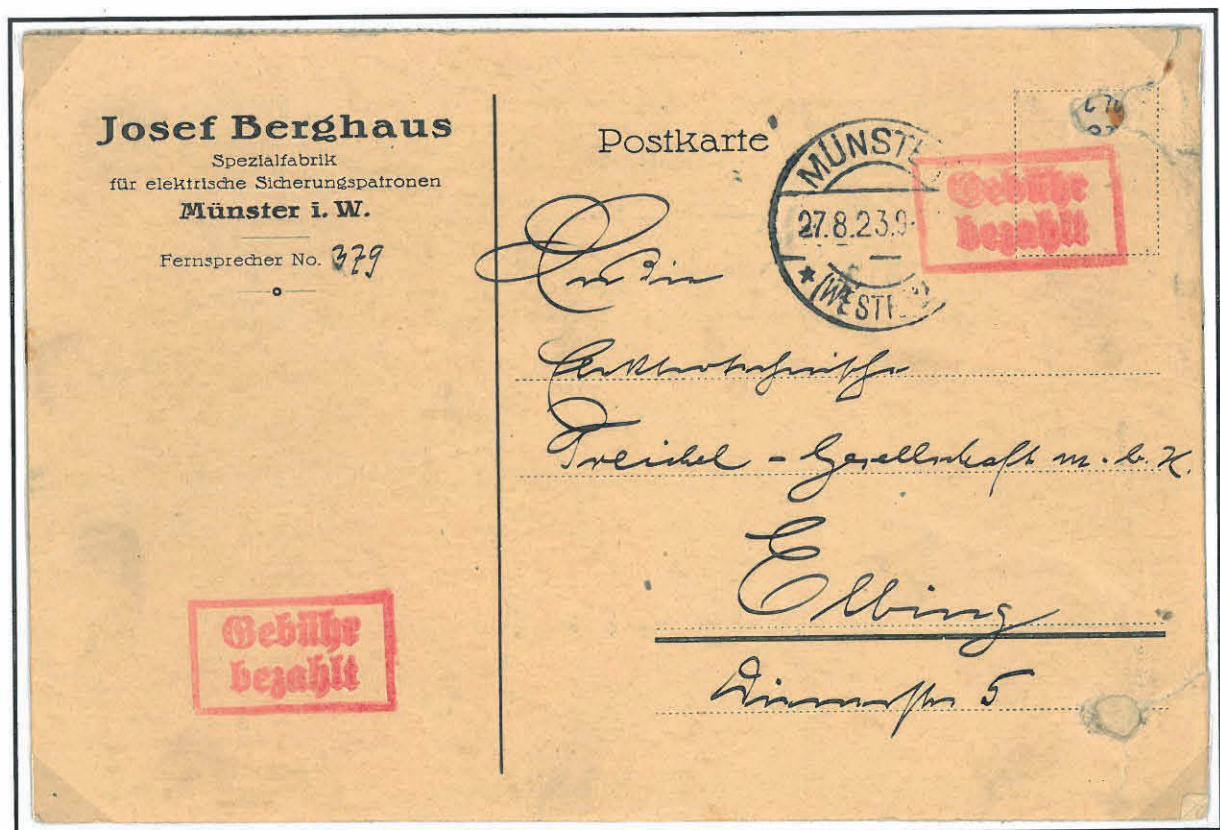 Josef Berghaus
Spezialfabrik
für elektrische Sicherungspatronen
Münster i. W.
Fernsprecher No. 379
Gebühr
bezahlt
Postkarte
MÜNSTE
27.8.23.9-
(WESTF.)
Gebühr
bezahlt
An die
Elektrotechnische
Treichel - Gesellschaft m. b. H.
Elbing
5